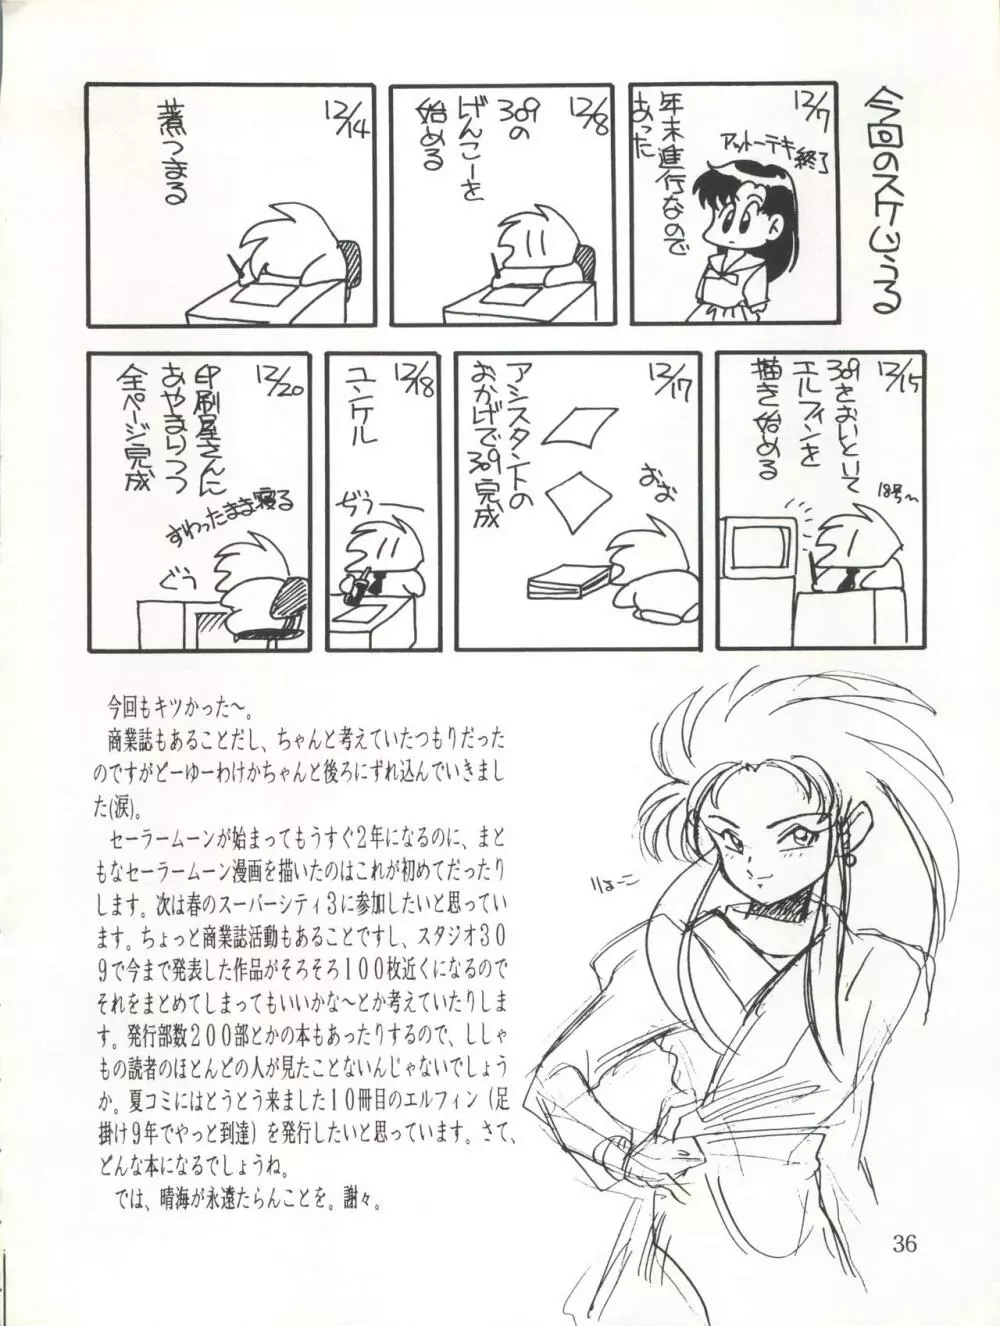 今回のスケジュウル
12/7
アットーテキ終了
年末進行なので
あった
12/8
309の
げんこーを
始める
12/14
煮つまる
12/15
309をおいといて
エルフィンを
描き始める
18号〜
12/17
アシスタントの
おかげで309完成
おお
12/18
ユンケル
ぢぅー
12/20
印刷屋さんに
あやまりつつ
全ページ完成
すわったまま寝る
ぐぅ
今回もキツかった〜。
商業誌もあることだし、ちゃんと考えていたつもりだった
のですがどーゆーわけかちゃんと後ろにずれ込んでいきまし
た(涙)。
セーラームーンが始まってもうすぐ2年になるのに、まと
もなセーラームーン漫画を描いたのはこれが初めてだったり
します。次は春のスーパーシティ3に参加したいと思ってい
ます。ちょっと商業誌活動もあることですし、スタジオ30
9で今まで発表した作品がそろそろ100枚近くになるので
それをまとめてしまってもいいかな〜とか考えていたりしま
す。発行部数200部とかの本もあったりするので、ししゃ
もの読者のほとんどの人が見たことないんじゃないでしょう
か。夏コミにはとうとう来ました10冊目のエルフィン（足
掛け9年でやっと到達）を発行したいと思っています。さて、
どんな本になるでしょうね。
では、晴海が永遠たらんことを。謝々。
りょーこ
36